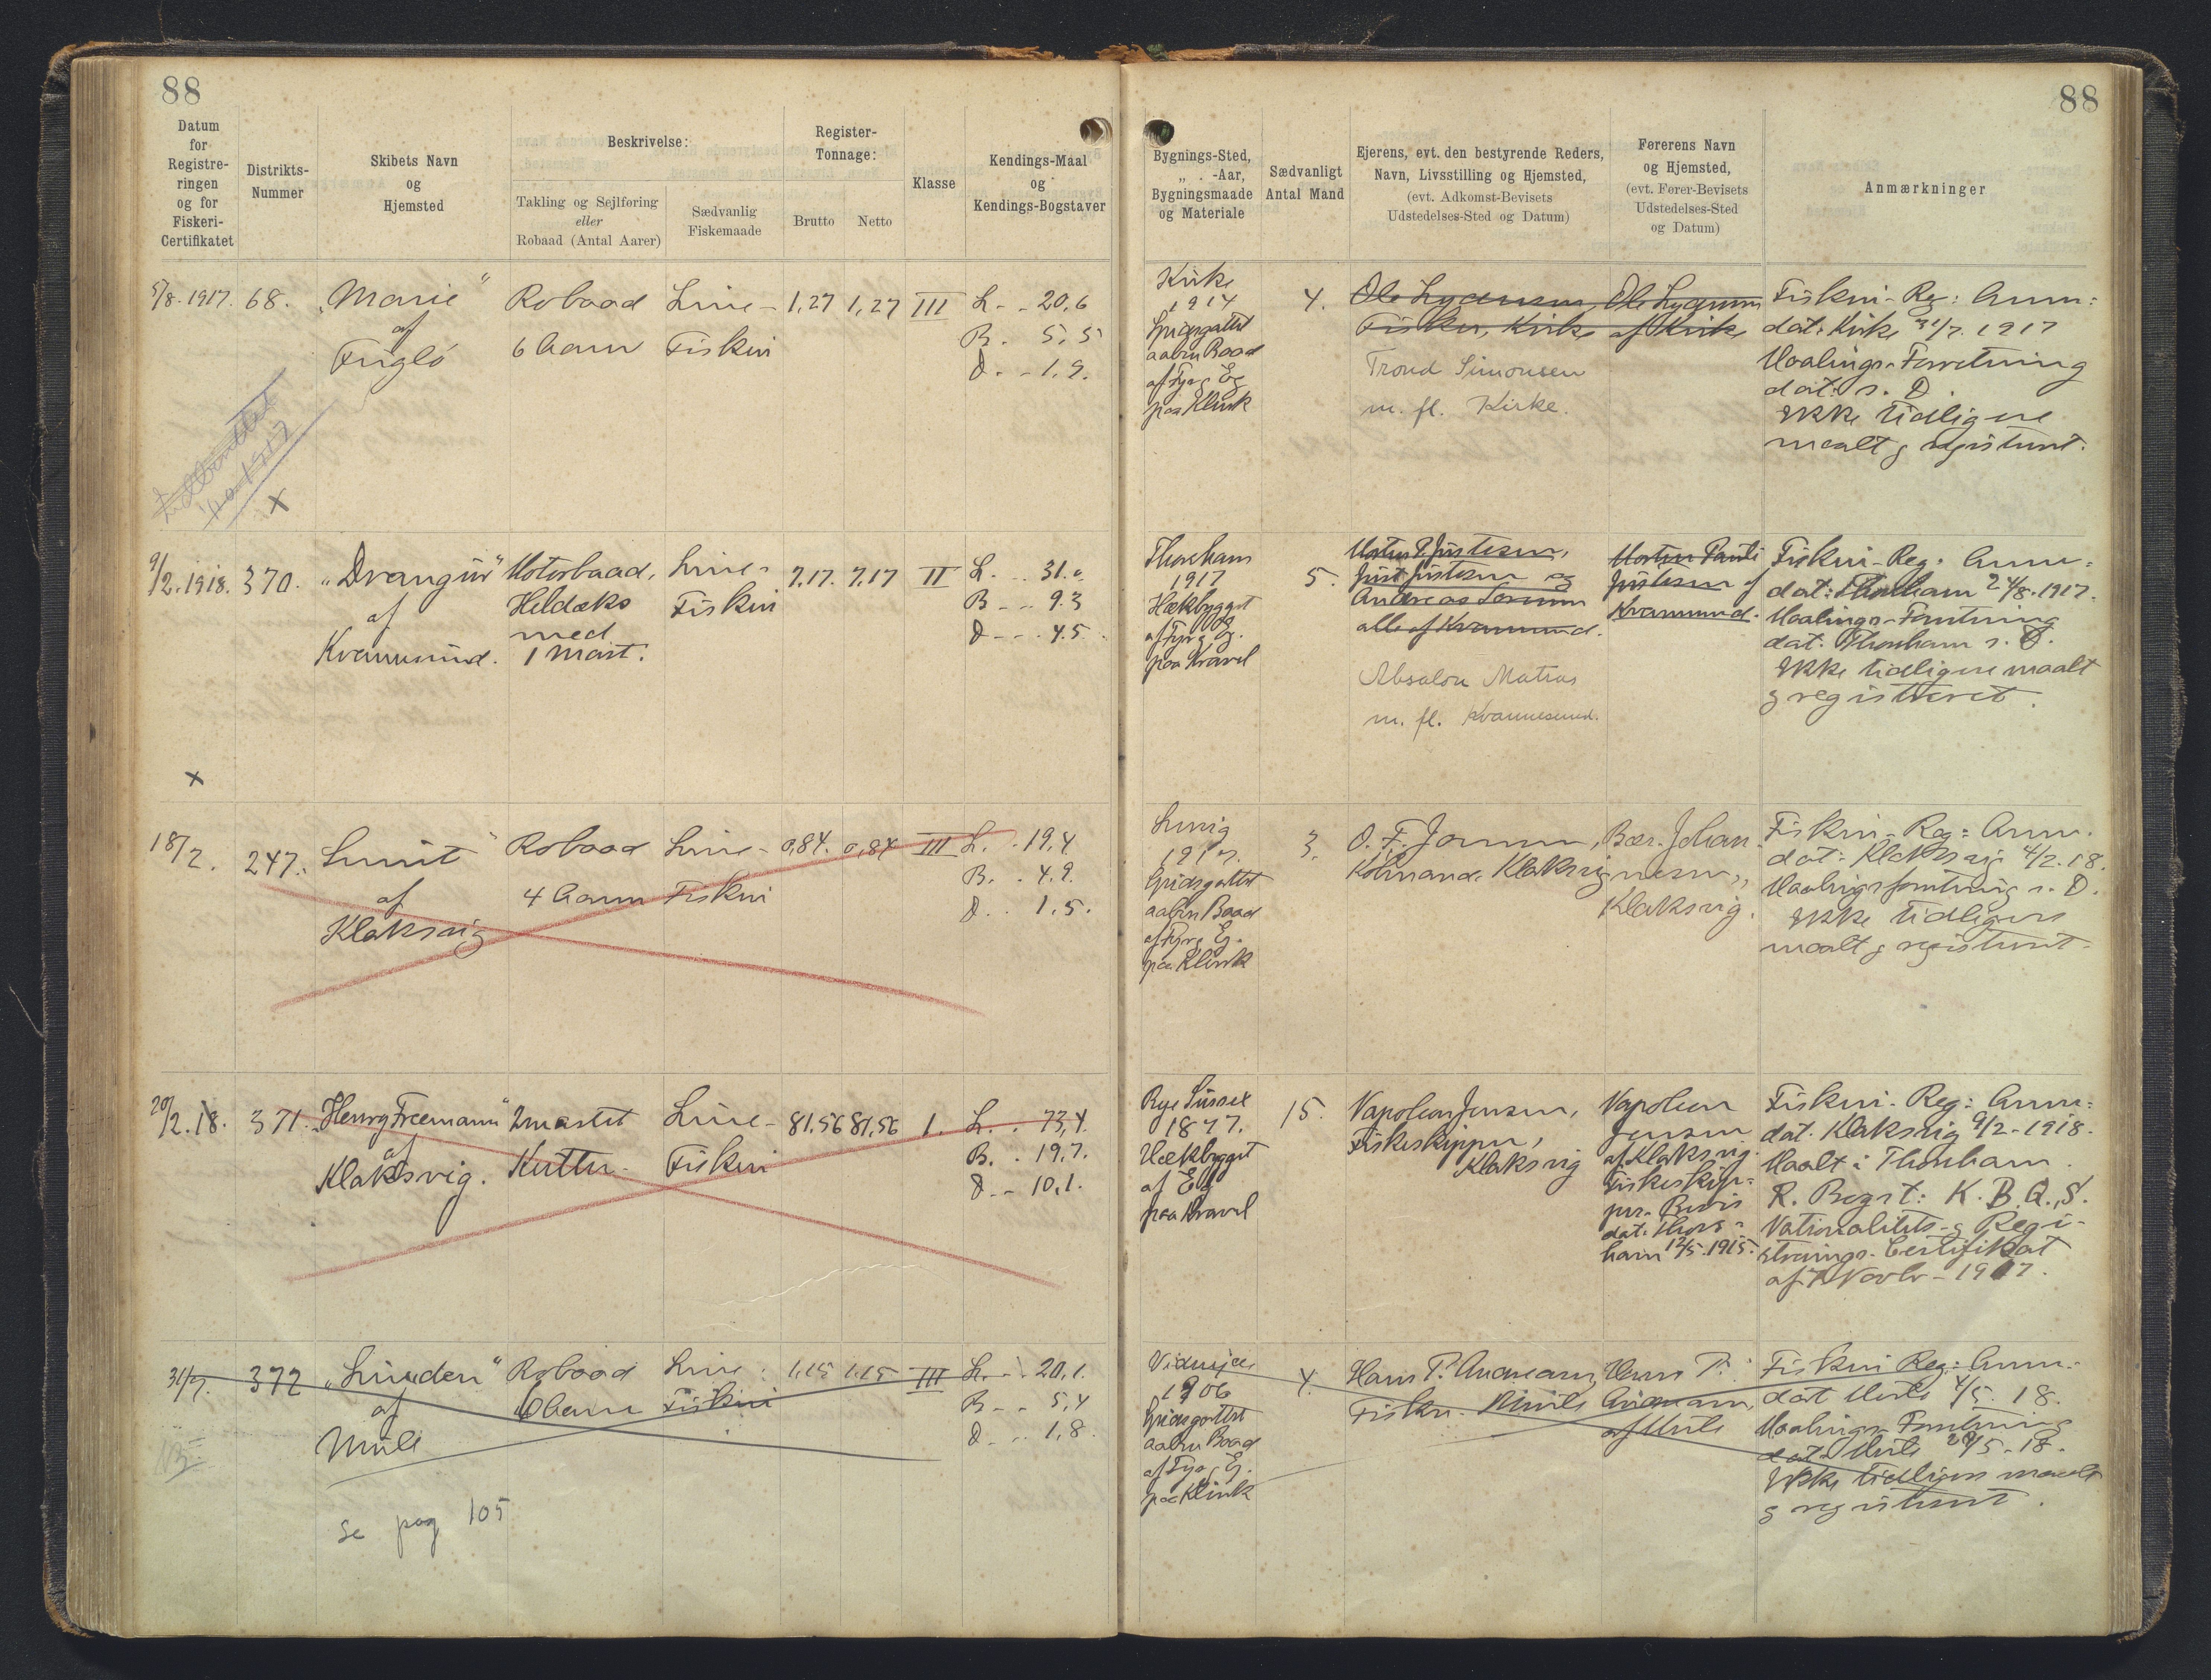 88
88
Datum
for
Registre-
ringen
og for
Fiskeri-
Certifikatet
Distrikts-
Nummer
Skibets Navn
og
Hjemsted
Beskrivelse:
Takling og Sejlføring
eller
Robaad (Antal Aarer)
Sædvanlig
Fiskemaade
Register-
Tonnage:
Brutto
Netto
Klasse
Kendings-Maal
og
Kendings-Bogstaver
Bygnings-Sted,
„ . -Aar,
Bygningsmaade
og Materiale
Sædvanligt
Antal Mand
Ejerens, evt. den bestyrende Reders,
Navn, Livsstilling og Hjemsted,
(evt. Adkomst-Bevisets
Udstedelses-Sted og Datum)
Førerens Navn
og Hjemsted,
(evt. Fører-Bevisets
Udstedelses-Sted
og Datum)
Anmærkninger
5/8. 1917.
68.
„Marie"
af
Fuglö
Robaad
6 Aarer
Line-
Fiskeri
1,27
1,27
III
L. - 20,6
B. 5,5
D. - 1.9.
Kirke
1914
Spidsgattet
aaben Baad
af Fyr og Eg
paa Klink
4.
Fisker, Kirke
Trond Simonsen
m. fl. Kirke.
af Kirke
Fiskeri-Reg: Anm:
dat: Kirke 31/7. 1917
Maalings-Forretning
dat: s. D.
Ikke tidligere
maalt og registreret.
x
9/2. 1918.
370.
„Drangur"
af
Kvannesund.
Motorbaad,
Heldæks
med
1 Mast.
Line-
Fiskeri
7.17.
7.17
II
L. .. 31.0
B - - 9.3
D - - . 4.5.
Thorshavn
1917
Hækbygget
af Fyr og Eg.
paa Kravel
5.
Morten P. Justesen,
Just Justesen og
Andreas
alle af Kvannesund.
Absalon Matras
m. fl. Kvannesund.
Morten Pauli
Justesen af
Kvannesund.
Fiskeri-Reg: Anm:
dat: Thorshavn 24/8. 1917.
Maalings-Forretning
dat. Thorshavn s. D.
Ikke tidligere maalt
og registreret.
x
18/2.
247.
af
Klaksvig
Robaad
4 Aarer
Line-
Fiskeri
0,84.
0,84
III
L. . 19,4
B. . 4.9.
D. . 1.5.
Spidsgattet
aaben Baad
af Fyr og Eg.
paa Klink
3.
Klaksvig
Johan-
nesen,
Klaksvig.
Fiskeri-Reg: Anm.
dat: Klaksvig 4/2. 18.
Maalingsforretning s. D.
Ikke tidligere
maalt og registreret.
20/2. 18.
371.
„Henry Freemann"
af
Klaksvig.
2mastet
Kutter.
Line-
Fiskeri
81.56
81,56
1.
L. . 73,4.
B. . 19,7.
D. - 10,1.
Rye Sussex
1877.
Hækbygget
af Eg
paa Kravel
15.
Napoleon Jensen,
Fiskeskipper,
Klaksvig
Napoleon
Jensen
af Klaksvig.
Fiskeskip-
per-Bevis
dat: Thors-
havn 12/5. 1915.
Fiskeri-Reg: Anm:
dat. Klaksvig 9/2-1918.
Maalt i Thorshavn.
R. Bogst: K. B. Q. S.
Nationalitets- og Regi-
strerings-Certifikat
af 7 Novbr-1917.
31/7.
372
„Linden"
af
Mule
Robaad
6 Aarer
Line-
Fiskeri
1.15
1.15
III
L. - . 20,1.
B. - - 5,4
D. - . 1,8.
Viderejde
1906
Spidsgattet
aaben Baad
af Fyr og Eg.
paa Klink
4.
Hans P. Andreasen,
Fisker. Mule
Hans P.
Andreasen,
af Mule
Fiskeri Reg: Anm:
dat Mule 4/5. 18.
Maalings-Forretning
dat Mule 29/5-18.
Ikke tidligere maalt
og registreret.
se pag 105